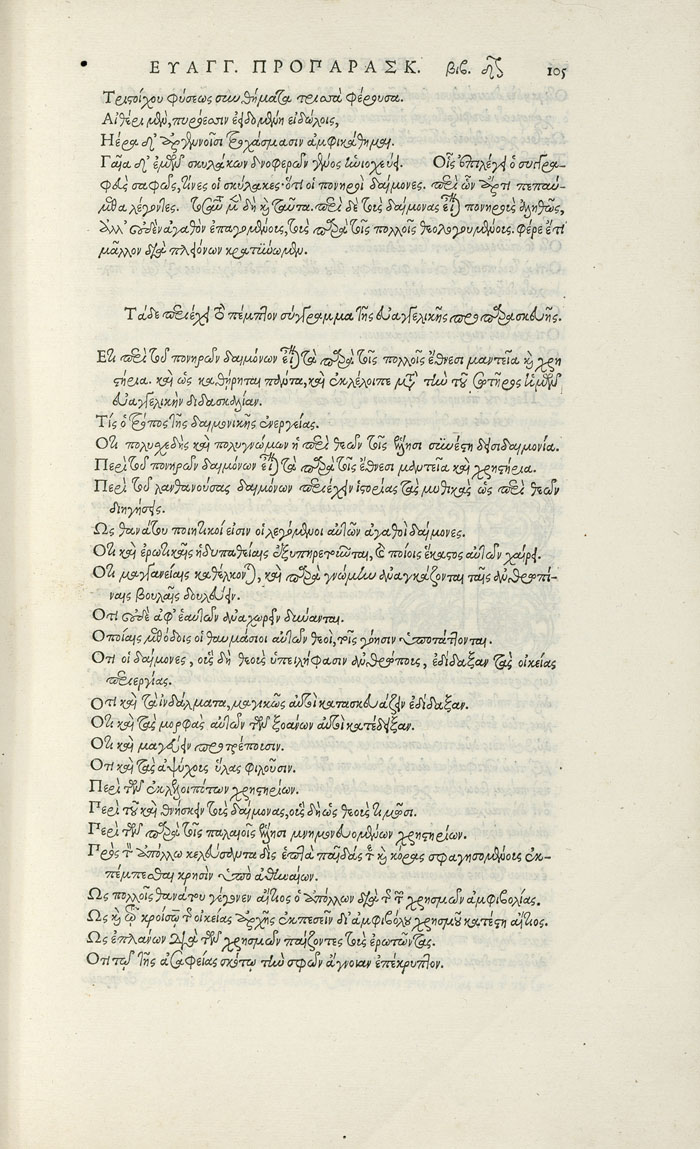 ΕΥΑΓΓ. ΠΡΟΠΑΡΑΣΚ. βιβ. δʹ 105
Τριστοίχου φύσεως συνθήματα τρισσὰ φέρουσα.
Αἰθέρι μὲν, πυρόεσσιν ἐειδομένη εἰδώλοις,
Ηέρα δ' ἀργεννοῖσι τροχάσμασιν ἀμφικάθημαι.
Γαῖα δ' ἐμῶν σκυλάκων δνοφερῶν γένος ἡνιοχεύει. Οἷς ἐπιλέγει ὁ συγγρα-
φεὺς σαφῶς, τίνες οἱ σκύλακες· ὅτι οἱ πονηροὶ δαίμονες. περὶ ὧν ἄρτι πεπαύ-
μεθα λέγοντες. τοσαῦτα μὲν δὴ καὶ ταῦτα. περὶ δὲ τοῦ τοὺς δαίμονας εἶναι πονηροὺς ἀληθῶς,
ἀλλ' οὐδὲν ἀγαθὸν ἐπαγομένους, τοὺς παρὰ τοῖς πολλοῖς θεολογουμένους. φέρε ἔτι
μᾶλλον διὰ πλειόνων κρατύνωμεν.
Τάδε περιέχει τὸ πέμπτον σύγγραμμα τῆς εὐαγγελικῆς προπαρασκευῆς.
Ετι περὶ τοῦ πονηρῶν δαιμόνων εἶναι τὰ παρὰ τοῖς πολλοῖς ἔθνεσι μαντεῖα καὶ χρη
στήρια. καὶ ὡς καθῄρηται πάντα, καὶ ἐκλέλοιπε μετὰ τὴν τοῦ σωτῆρος ἡμῶν
εὐαγγελικὴν διδασκαλίαν.
Τίς ὁ τρόπος τῆς δαιμονικῆς ἐνεργείας.
Οτι πολυσχεδὴς καὶ πολυγνώμων ἡ περὶ θεῶν τοῖς ἕλλησι συνέστη δεισιδαιμονία.
Περὶ τοῦ πονηρῶν δαιμόνων εἶναι τὰ παρὰ τοῖς ἔθνεσι μαντεῖα καὶ χρηστήρια.
Περὶ τοῦ λανθανούσας δαιμόνων περιέχειν ἱστορίας τὰς μυθικὰς ὡς περὶ θεῶν
διηγήσεις.
Ως θανάτου ποιητικοί εἰσιν οἱ λεγόμενοι αὐτῶν ἀγαθοὶ δαίμονες.
Οτι καὶ ἐρωτικαῖς ἡδυπαθείαις ἐξυπηρετοῦνται, καὶ ποίοις ἕκαστος αὐτῶν χαίρει.
Οτι μαγγανείαις καθέλκονται, καὶ παρὰ γνώμην ἀναγκάζονται ταῖς ἀνθρωπί-
ναις βουλαῖς δουλεύειν.
Οτι οὐδὲ ἀφ' ἑαυτῶν ἀναχωρεῖν δύνανται.
Οποίαις μεθόδοις οἱ θαυμάσιοι αὐτῶν θεοὶ, τοῖς γόησιν ὑποτάττονται.
Οτι οἱ δαίμονες, οὓς δὴ θεοὺς ὑπειλήφασιν ἄνθρωποις, ἐδίδαξαν τὰς οἰκείας
περιεργίας.
Οτι καὶ τὰ ἰνδάλματα, μαγικῶς αὐτοὶ κατασκευάζειν ἐδίδαξαν.
Οτι καὶ τὰς μορφὰς αὐτῶν τῶν ξοάνων αὐτοὶ κατέδειξαν.
Οτι καὶ μαγεύειν προτρέπουσιν.
Οτι καὶ τὰς ἀψύχους ὕλας φιλοῦσιν.
Περὶ τῶν ἐκλελοιπότων χρηστηρίων.
Περὶ τοῦ καὶ θνήσκειν τοὺς δαίμονας, οὓς δὴ ὡς θεοὺς τιμῶσι.
Περὶ τῶν παρὰ τοῖς παλαιοῖς ἕλλησι μνημονευομένων χρηστηρίων.
Πρὸς τὸν ἀπόλλω κελεύσαντα δὶς ἑπτὰ παῖδάς τε καὶ κόρας σφαγησομένους ἐκ-
πέμπεσθαι κρησὶν ὑπὸ ἀθηναίων.
Ως πολλοῖς θανάτου γέγονεν αἴτιος ὁ ἀπόλλων διὰ τῆς τῶν χρησμῶν ἀμφιβολίας.
Ως καὶ τῷ κροίσῳ τῆς οἰκείας ἀρχῆς ἐκπεσεῖν δι' ἀμφιβόλου χρησμοῦ κατέστη αἴτιος.
Ως ἐπλάνων διὰ τῶν χρησμῶν παίζοντες τοὺς ἐρωτῶντας.
Οτι τῷ τῆς ἀσαφείας σκότῳ τὴν σφῶν ἄγνοιαν ἐπέκρυπτον.